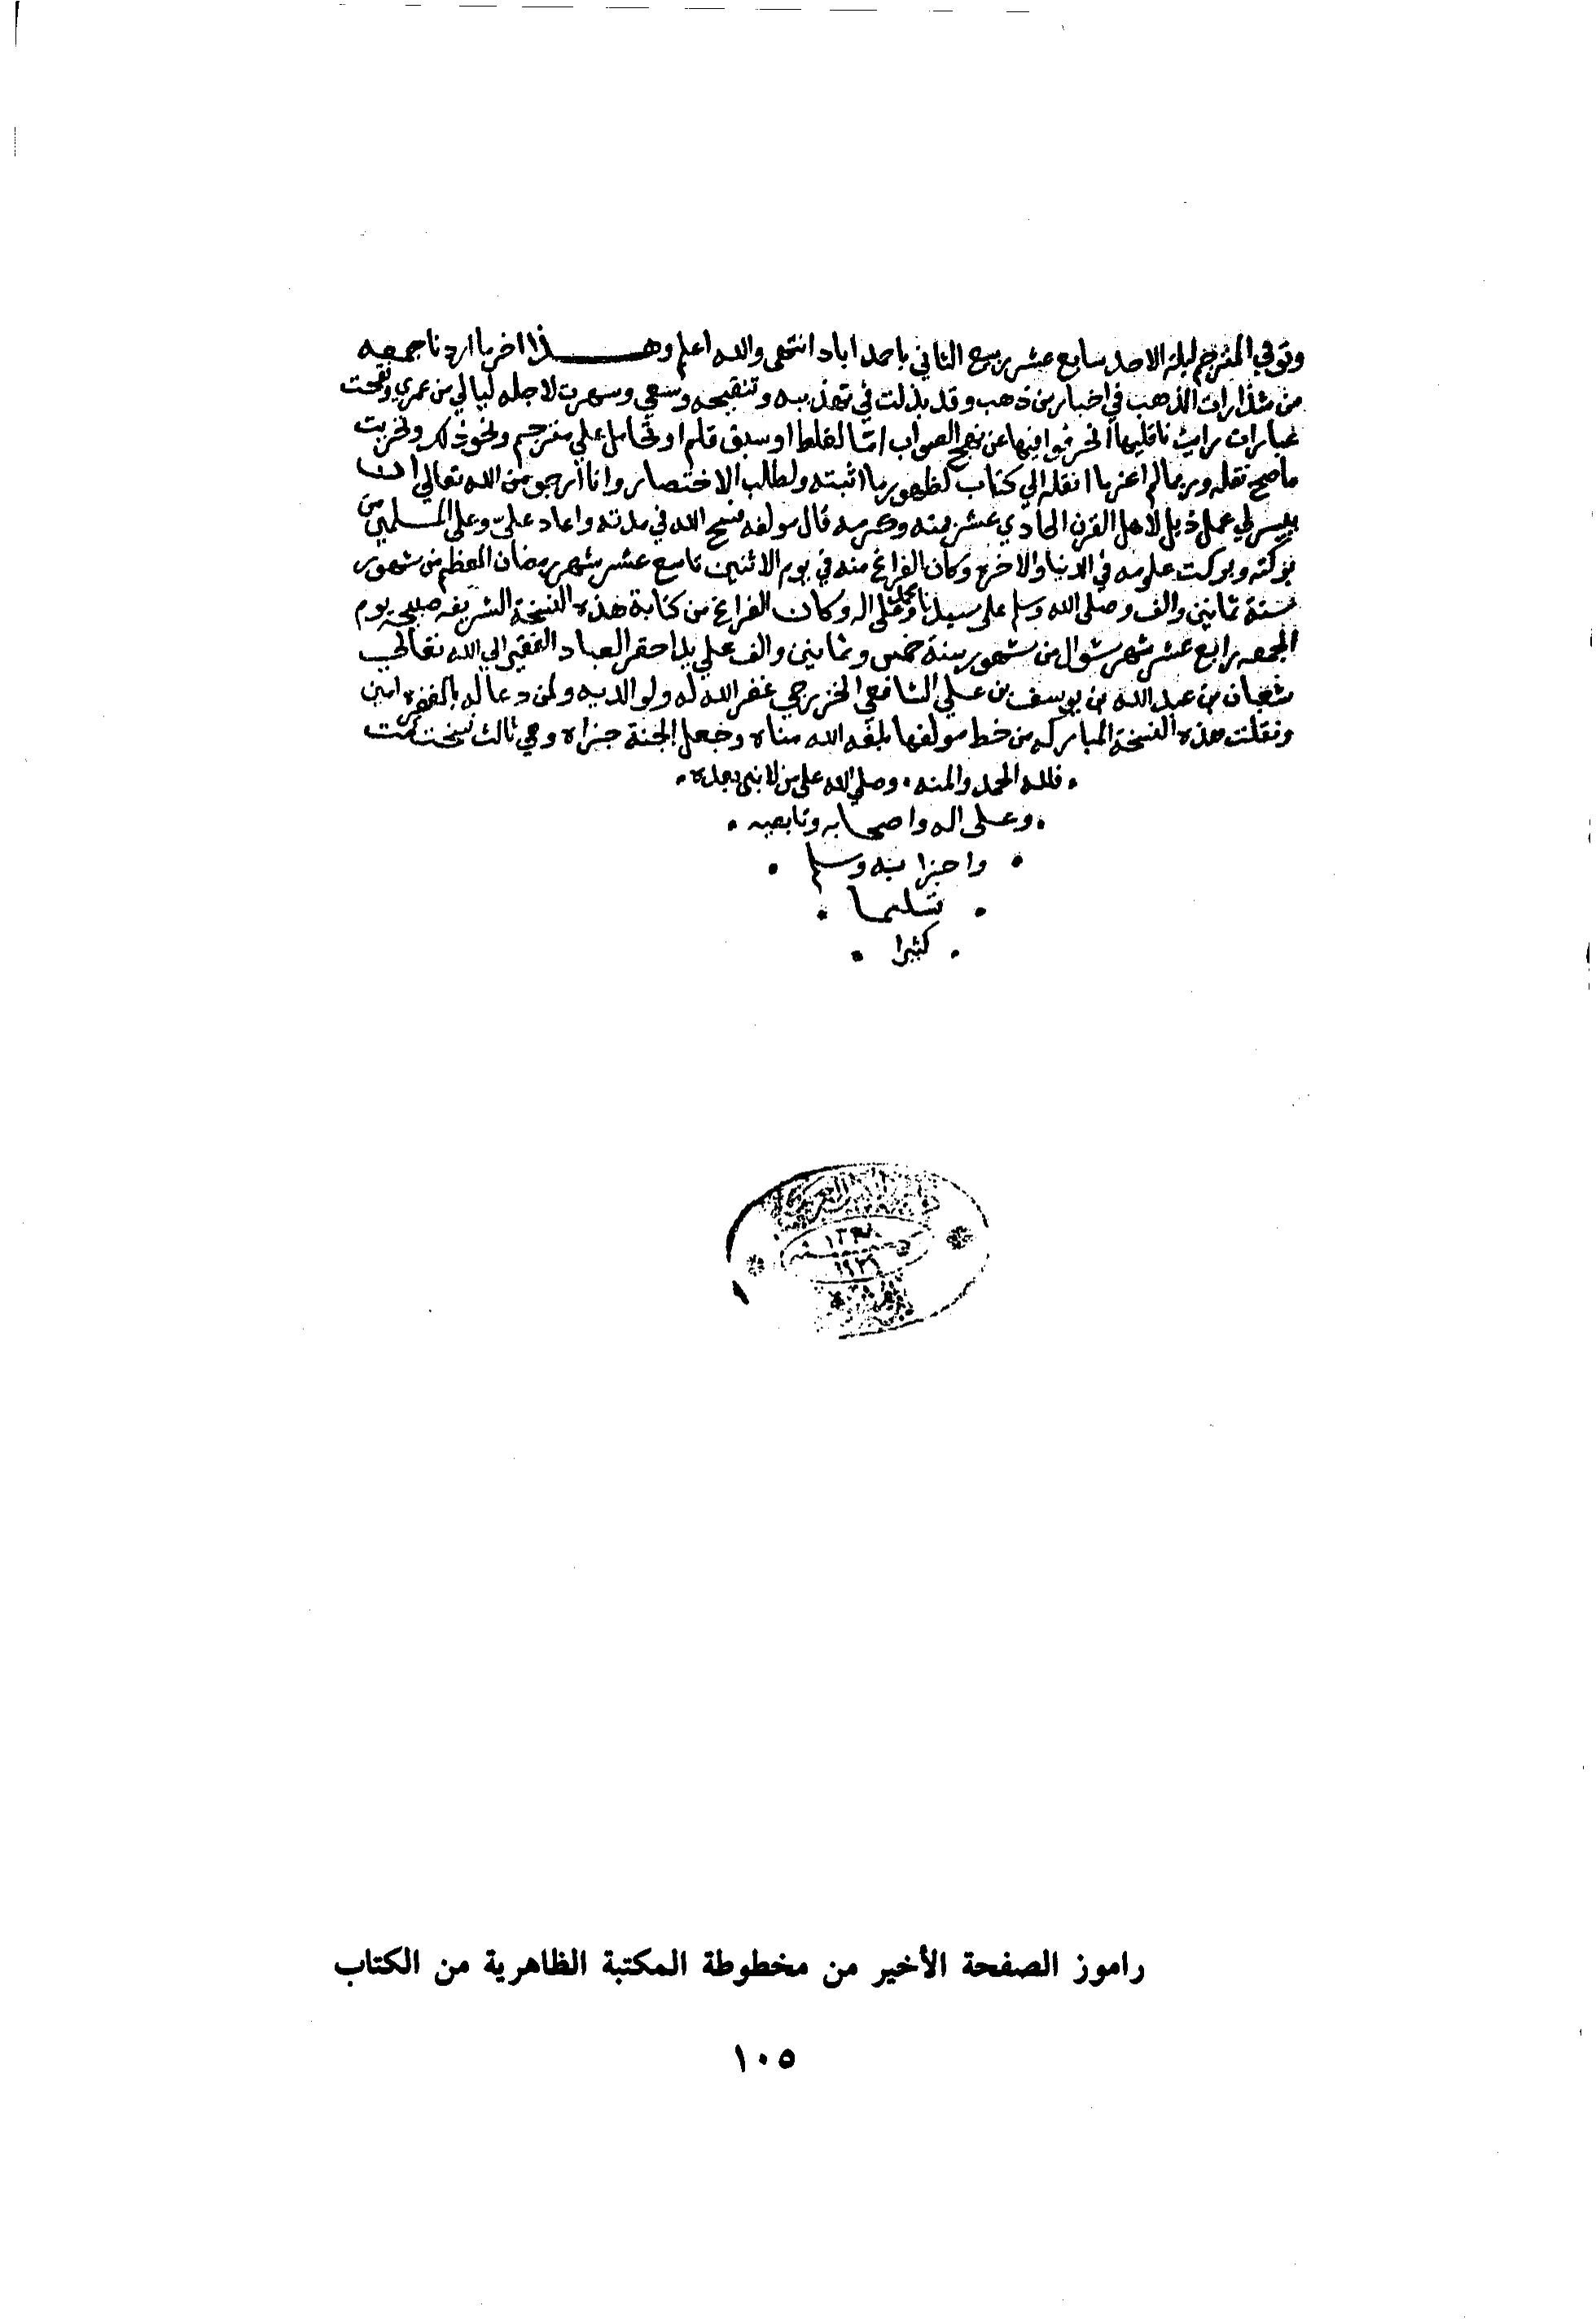 وتوفي المترجم ليلة الاحد سابع عشر ربيع الثاني باحمد اباد انتهى والله اعلم وهذا اخر ما اردنا جمعه
من شذرات الذهب في اخبار من ذهب وقد بذلت في تهذيبه وتنقيحه وسعي وسهرت لاجله ليالي من عمري ونقحت
عبارات رايت ناقليها انحرفوا فيها عن نهج الصواب اما لغلط او سبق قلم او تحامل علي مترجم ونحو ذلك وتحريت
ما صح نقله وربما لم اعز ما انقله الي كتاب لظهور ما اثبته ولطلب الاختصار وانا ارجو من الله تعالي ان
ييسر لي عمل ذيل لاهل القرن الحادي عشر بمنه وكرمه قال مولفه فسح الله في مدته واعاد علي وعلي المسلمين من
بركته وبركت علومه في الدنيا والاخره وكان الفراغ منه في يوم الاثنين تاسع عشر شهر رمضان المعظم من شهور
سنة ثمانين والف وصلى الله وسلم على سيدنا محمد وعلى اله وكان الفراغ من كتابة هذه النسخة الشريفه صبيحه يوم
الجمعه رابع عشر شهر شوال من شهور سنة خمس وثمانين والف علي يد احقر العباد الفقير الي الله تعالي
شعبان بن عبد الله بن يوسف بن علي الشافعي الخزرجي غفر الله له ولوالديه ولمن دعا له بالمغفره امين
ونقلت هذه النسخة المباركه من خط مولفها بلغه الله مناه وجعل الجنة جزاه وهي ثالث نسخت تمت
. فلله الحمد والمنه . وصلي الله على من لا نبي بعده .
. وعلى اله واصحابه وتابعيه .
. واحزابه وسلم .
. تسليما .
. كثيرا .
١٩٢٩
راموز الصفحة الأخير من مخطوطة المكتبة الظاهرية من الكتاب
١٠٥